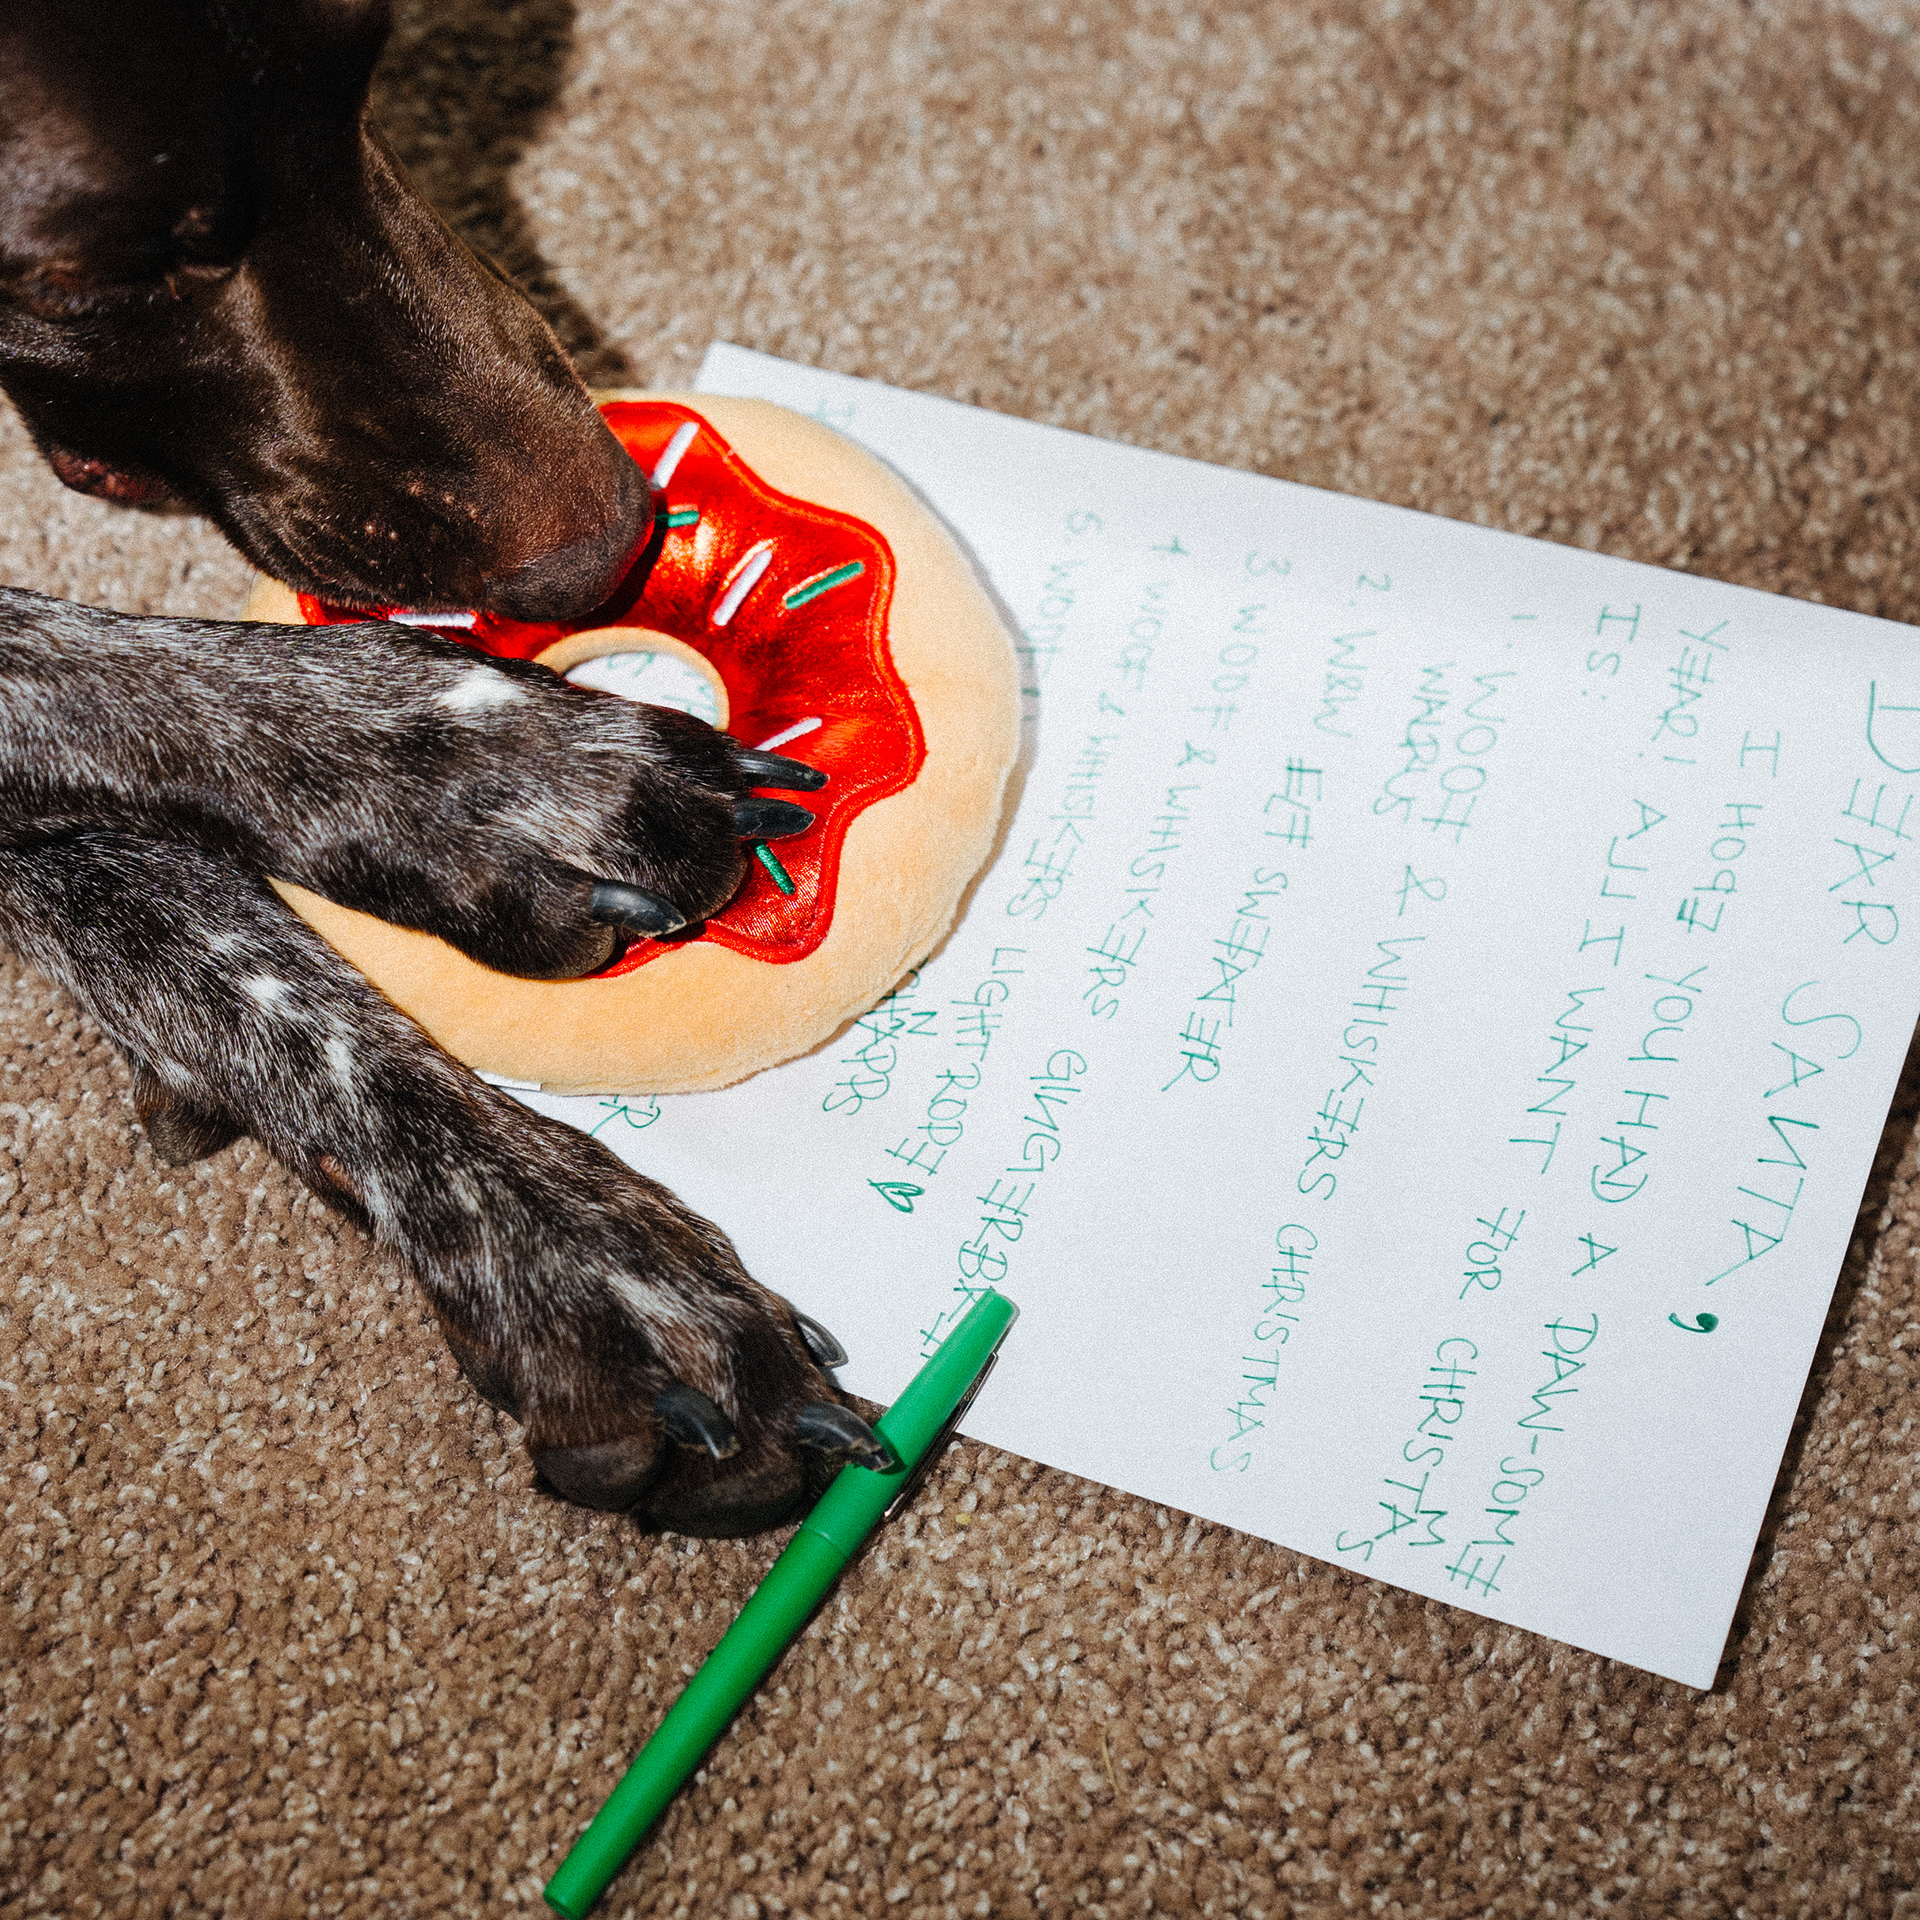 DEAR SANTA,
I HOPE YOU HAD A PAW-SOME
YEAR! ALL I WANT FOR CHRISTMAS
IS:
1. WOOF & WHISKERS CHRISTMAS
WALRUS
2. W&W ELF SWEATER
3 WOOF & WHISKERS GINGERBREA
4 WOOF & WHISKERS LIGHT ROPE
5. WOOF